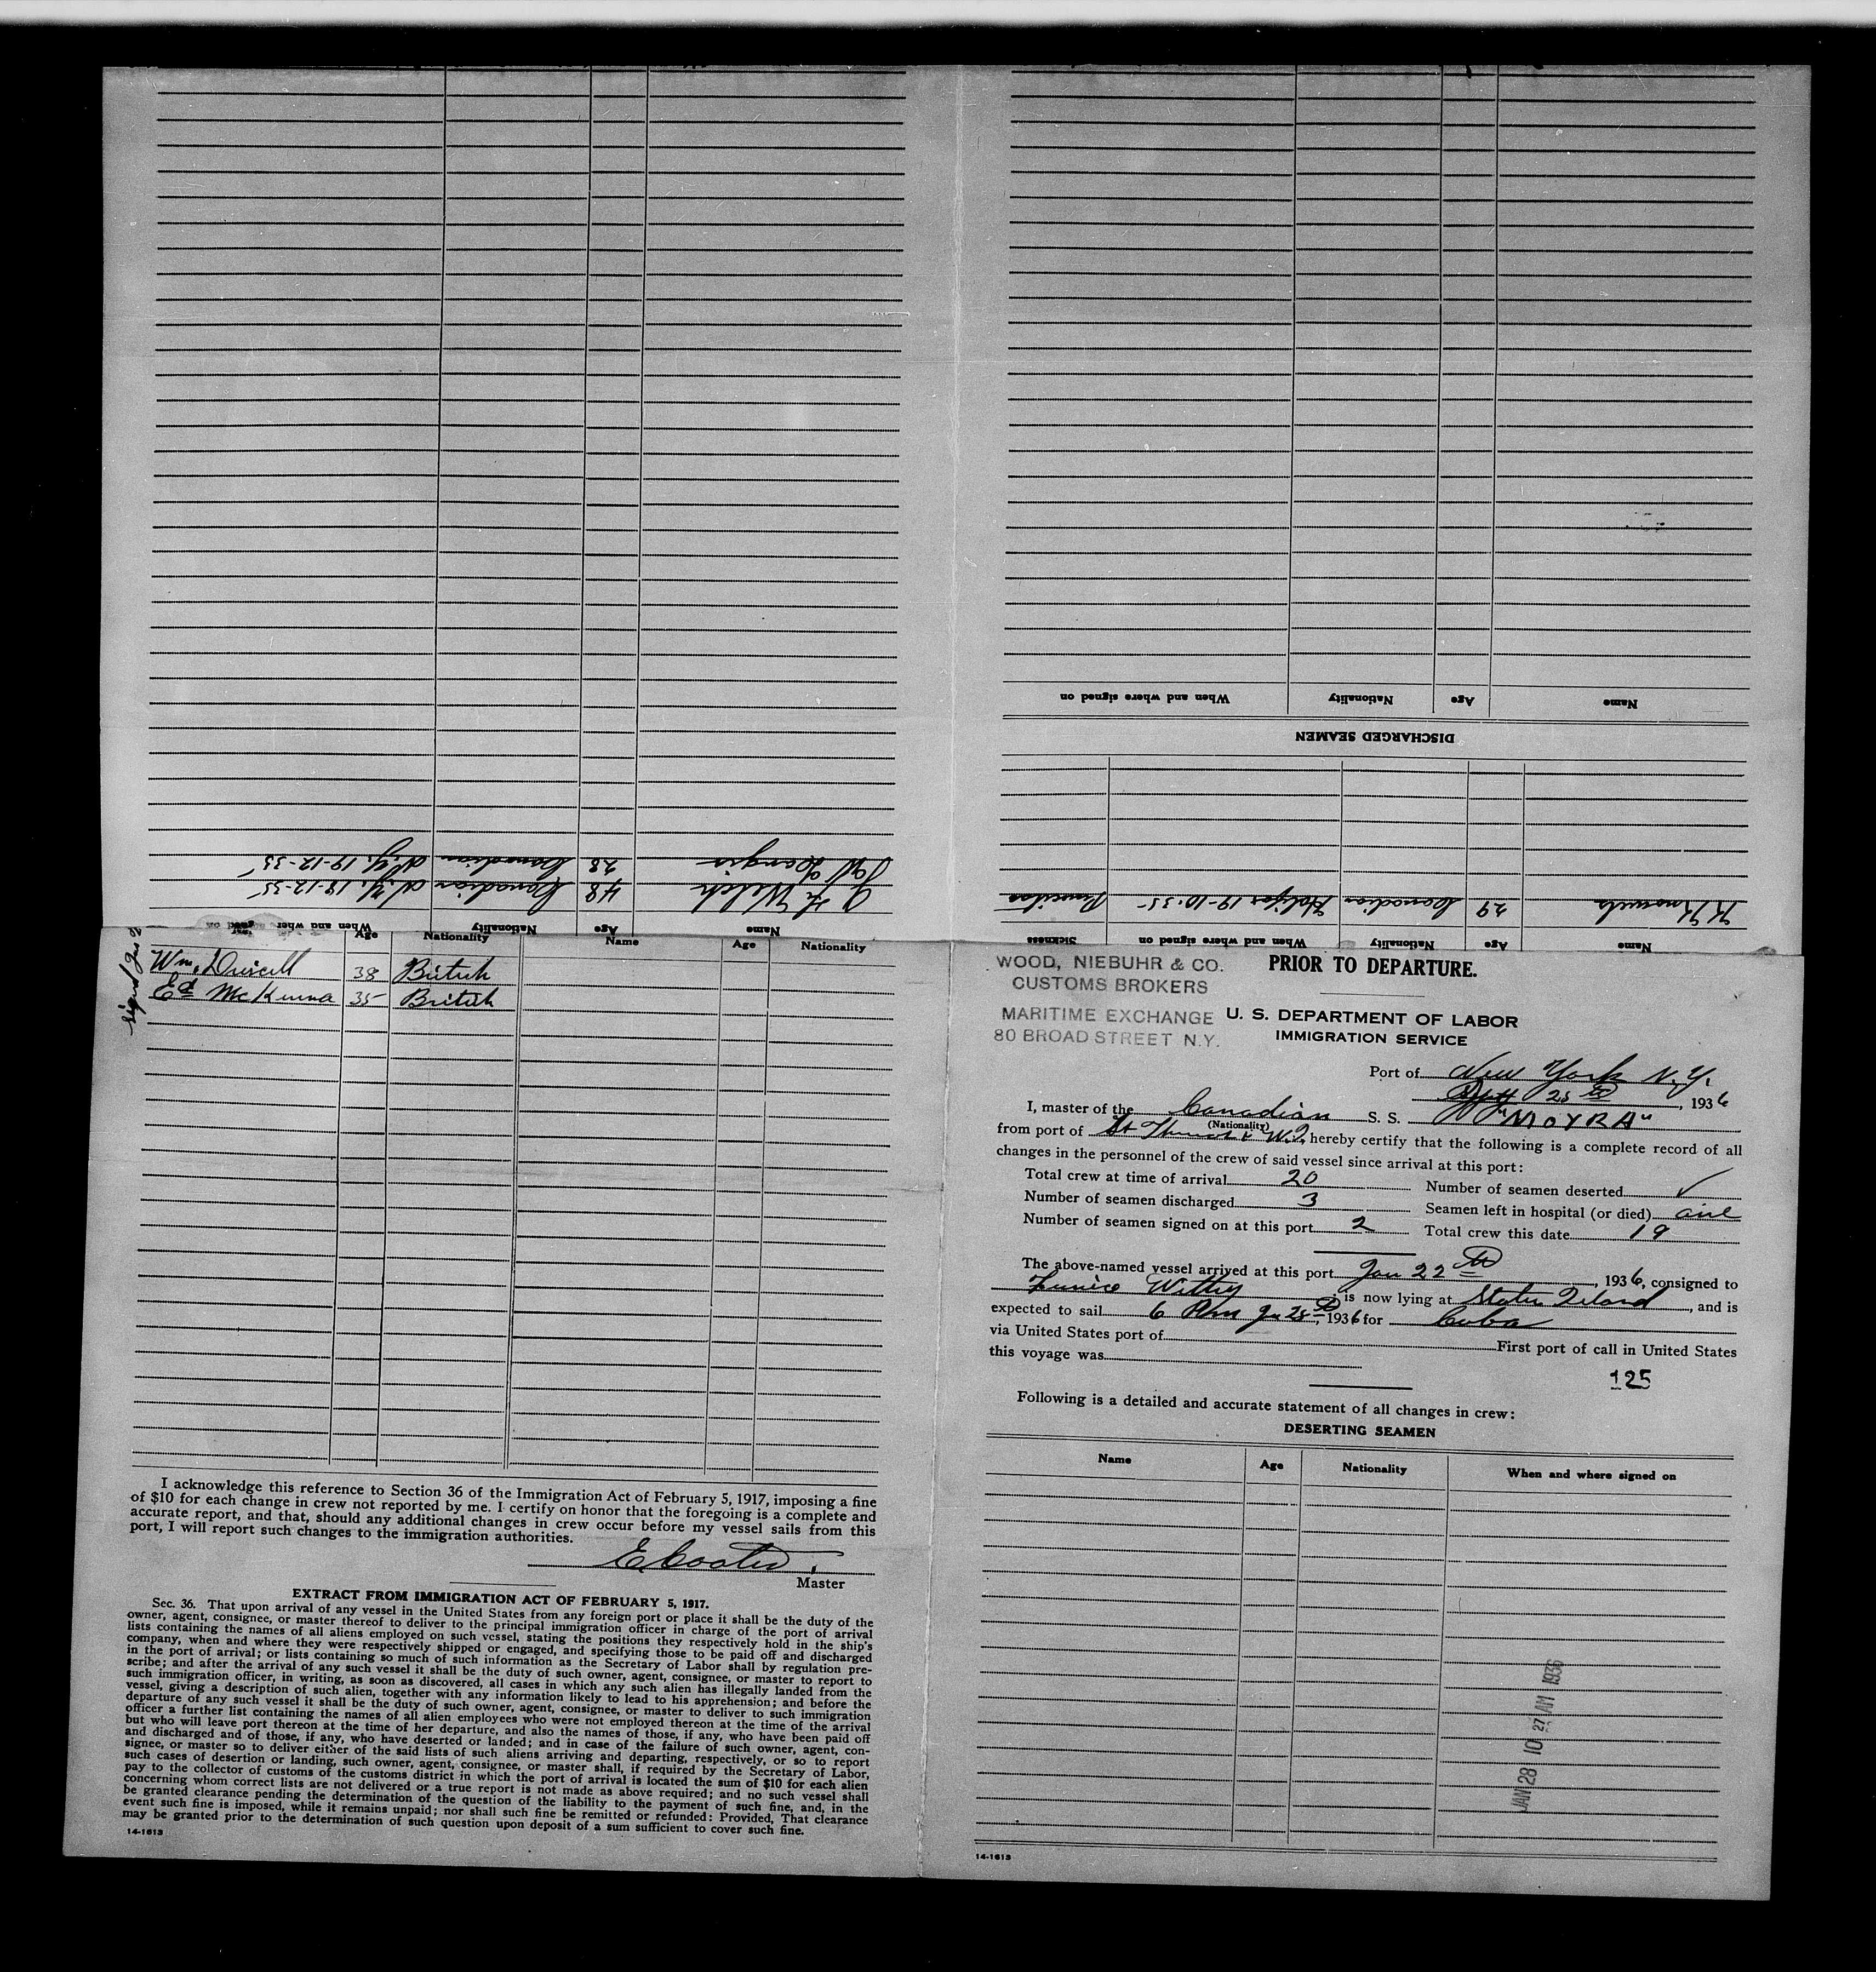 Name Age Nationality When and where signed on
G. H. Welch 48 Canadian N.Y. 19-12-35
28 Canadian N.Y. 19-12-35
Name Age Nationality When and where signed on
DISCHARGED SEAMEN
Name Age Nationality When and where signed on Sickness
H Knowels 29 Canadian Halifax 19-10-35
Age Nationality Name Age Nationality
Wm. Driscell 38 British
Ed McKinna 35 British
I acknowledge this reference to Section 36 of the Immigration Act of February 5, 1917, imposing a fine
of $10 for each change in crew not reported by me. I certify on honor that the foregoing is a complete and
accurate report, and that, should any additional changes in crew occur before my vessel sails from this
port, I will report such changes to the immigration authorities.
E Coates.
Master
EXTRACT FROM IMMIGRATION ACT OF FEBRUARY 5, 1917.
Sec. 36. That upon arrival of any vessel in the United States from any foreign port or place it shall be the duty of the
owner, agent, consignee, or master thereof to deliver to the principal immigration officer in charge of the port of arrival
lists containing the names of all aliens employed on such vessel, stating the positions they respectively hold in the ship's
company, when and where they were respectively shipped or engaged, and specifying those to be paid off and discharged
in the port of arrival; or lists containing so much of such information as the Secretary of Labor shall by regulation pre-
scribe; and after the arrival of any such vessel it shall be the duty of such owner, agent, consignee, or master to report to
such immigration officer, in writing, as soon as discovered, all cases in which any such alien has illegally landed from the
vessel, giving a description of such alien, together with any information likely to lead to his apprehension; and before the
departure of any such vessel it shall be the duty of such owner, agent, consignee, or master to deliver to such immigration
officer a further list containing the names of all alien employees who were not employed thereon at the time of the arrival
but who will leave port thereon at the time of her departure, and also the names of those, if any, who have been paid off
and discharged and of those, if any, who have deserted or landed; and in case of the failure of such owner, agent, con-
signee, or master so to deliver either of the said lists of such aliens arriving and departing, respectively, or so to report
such cases of desertion or landing, such owner, agent, consignee, or master shall, if required by the Secretary of Labor,
pay to the collector of customs of the customs district in which the port of arrival is located the sum of $10 for each alien
concerning whom correct lists are not delivered or a true report is not made as above required; and no such vessel shall
be granted clearance pending the determination of the question of the liability to the payment of such fine, and, in the
event such fine is imposed, while it remains unpaid; nor shall such fine be remitted or refunded: Provided, That clearance
may be granted prior to the determination of such question upon deposit of a sum sufficient to cover such fine.
14-1613
WOOD, NIEBUHR & CO.
CUSTOMS BROKERS
MARITIME EXCHANGE
80 BROAD STREET N.Y.
PRIOR TO DEPARTURE.
U. S. DEPARTMENT OF LABOR
IMMIGRATION SERVICE
Port of New York N.Y.
, 1936
I, master of the Canadian S. S. "MOYRA"
(Nationality)
from port of St W.I. hereby certify that the following is a complete record of all
changes in the personnel of the crew of said vessel since arrival at this port:
Total crew at time of arrival 20 Number of seamen deserted ✓
Number of seamen discharged 3 Seamen left in hospital (or died)
Number of seamen signed on at this port 2 Total crew this date 19
The above-named vessel arrived at this port Jan 22nd, 1936, consigned to
Funess Withy is now lying at Staten Island, and is
expected to sail 6 Pm Jan 28th, 1936 for Cuba
via United States port of First port of call in United States
this voyage was
125
Following is a detailed and accurate statement of all changes in crew:
DESERTING SEAMEN
Name Age Nationality When and where signed on
JAN 28 10 27 AM 1936
14-1613